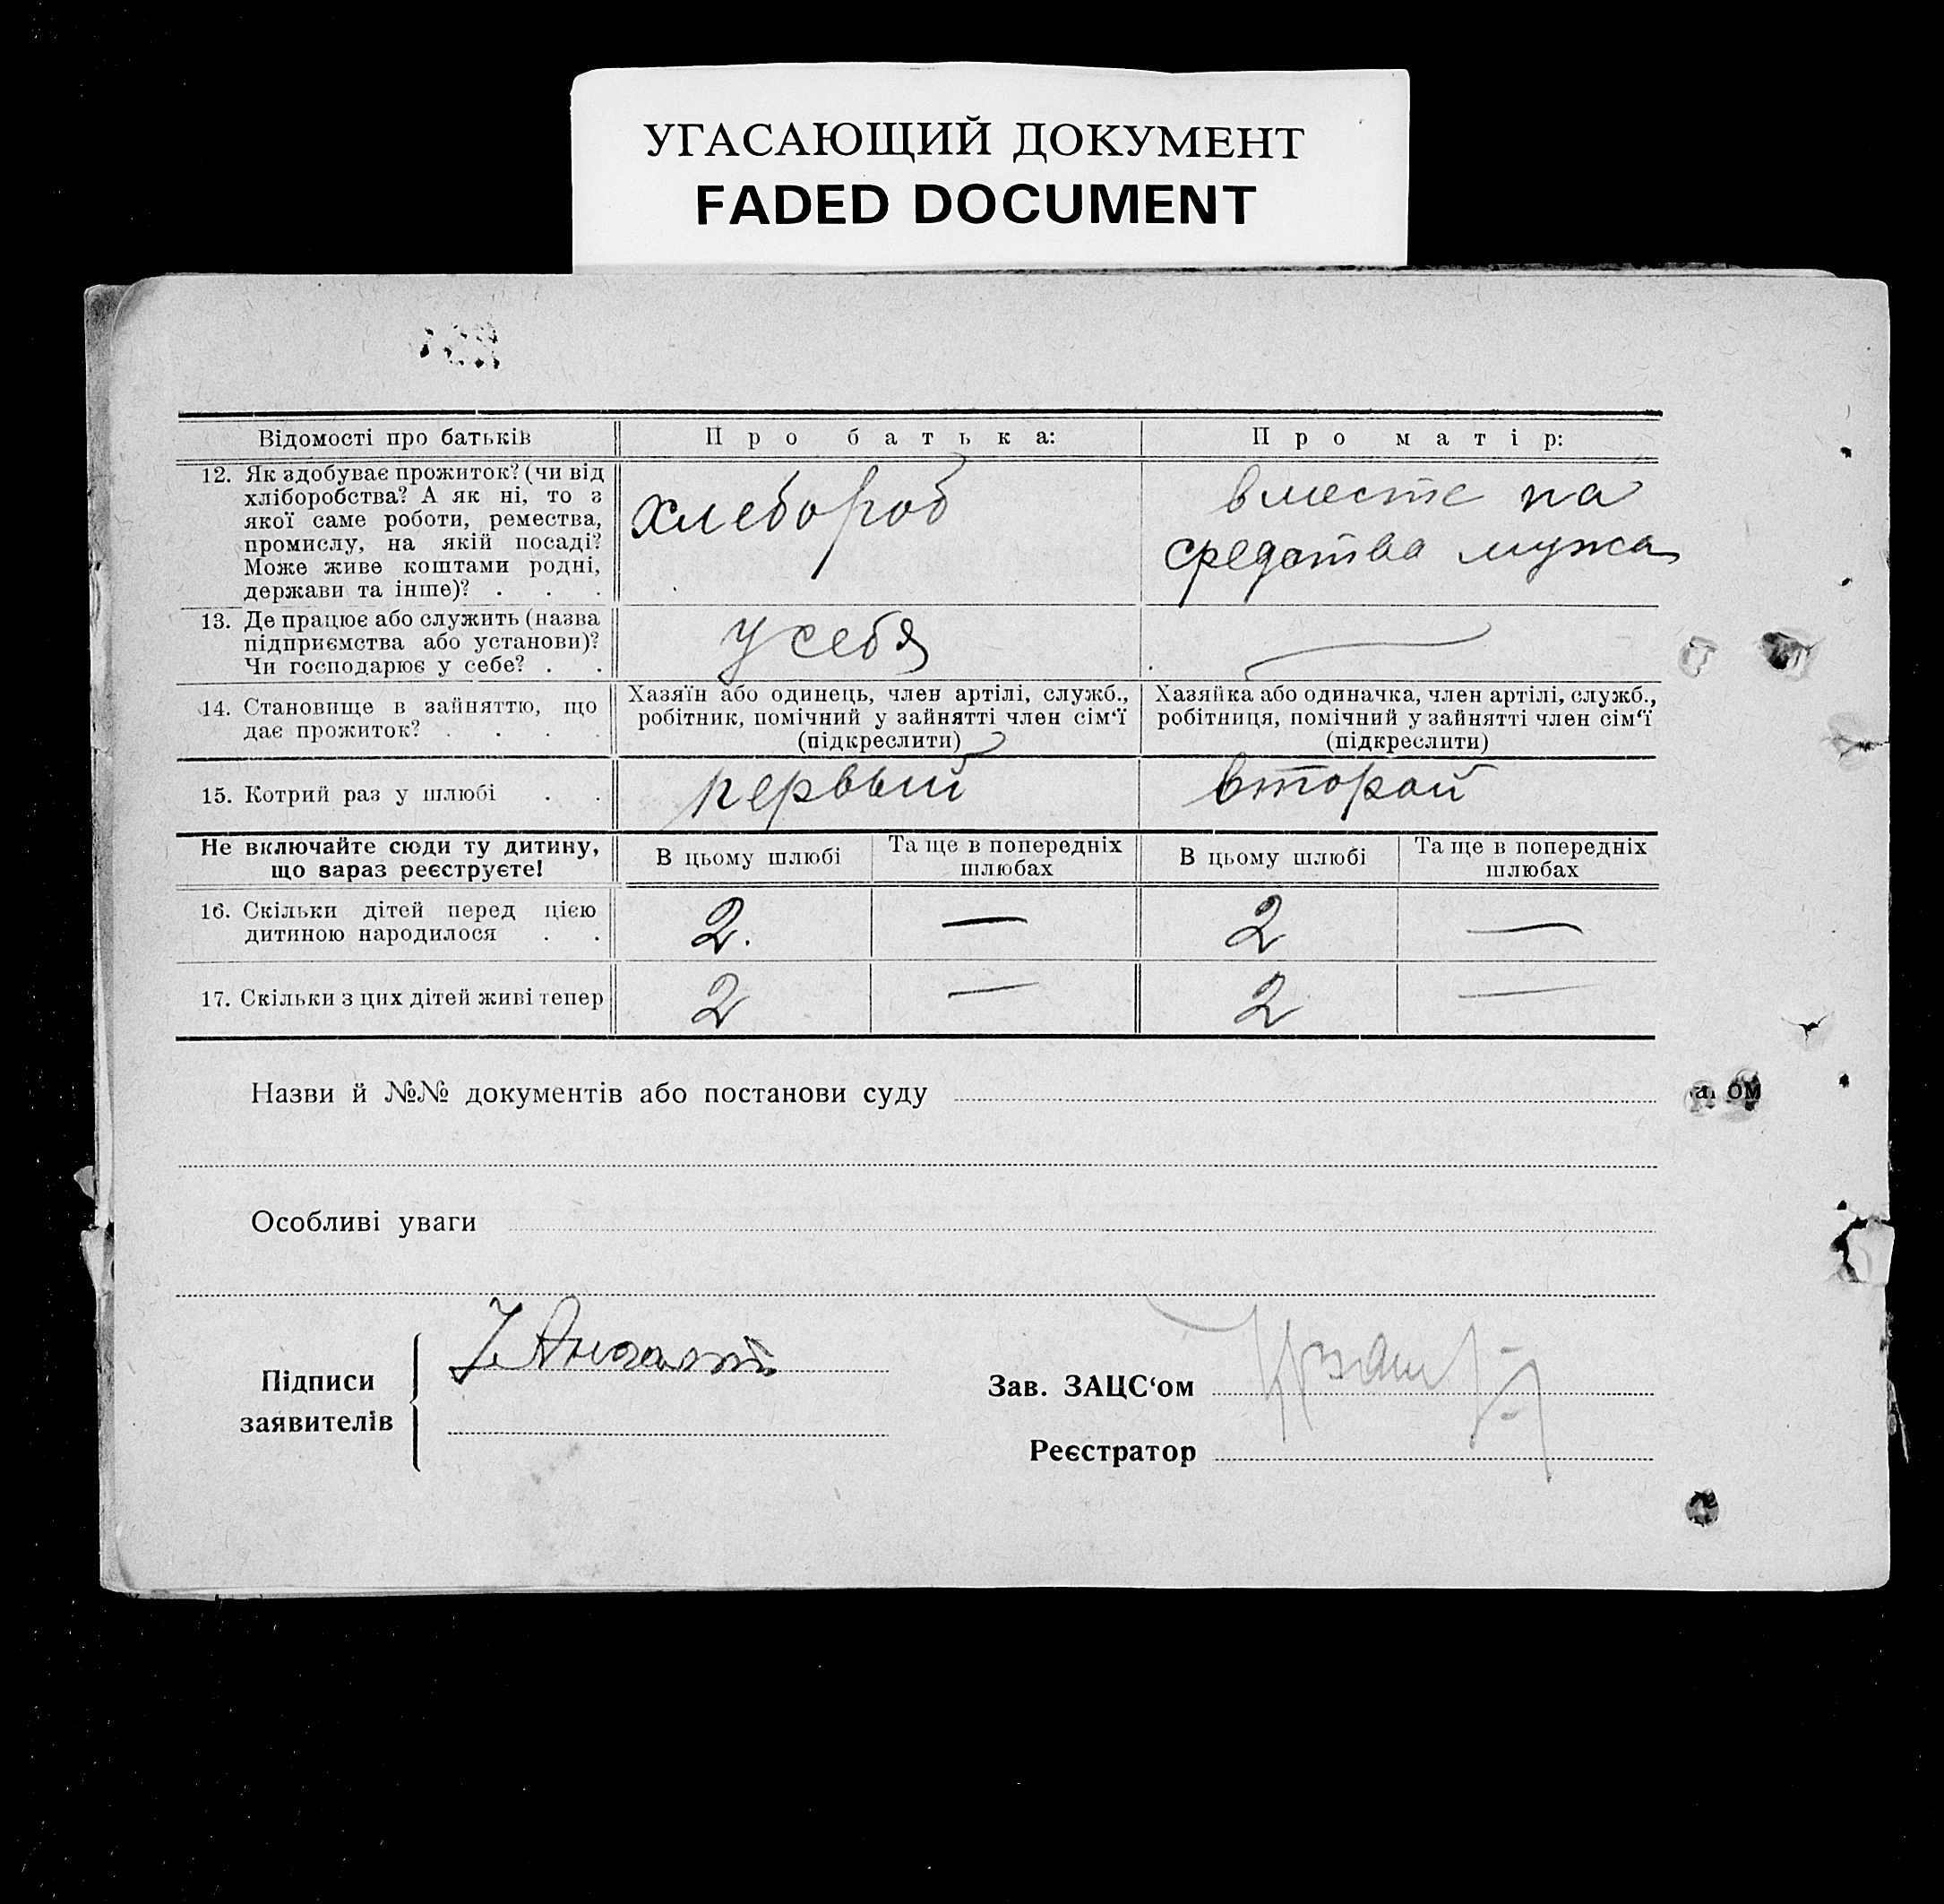 УГАСАЮЩИЙ ДОКУМЕНТ
FADED DOCUMENT
Відомості про батьків
Про батька:
Про матір:
12. Як здобуває прожиток? (чи від
хліборобства? А як ні, то з
якої саме роботи, ремества,
промислу, на якій посаді?
Може живе коштами родні,
держави та інше)? . . .
хлебороб
вместе на
средства мужа
13. Де працює або служить (назва
підприємства або установи)?
Чи господарює у себе? . .
у себя
—
14. Становище в зайняттю, що
дає прожиток? . . . .
Хазяїн або одинець, член артілі, служб.,
робітник, помічний у зайнятті член сім'ї
(підкреслити)
Хазяйка або одиначка, член артілі, служб.,
робітниця, помічний у зайнятті член сім'ї
(підкреслити)
15. Котрий раз у шлюбі . .
первый
второй
Не включайте сюди ту дитину,
що зараз реєструєте!
В цьому шлюбі
Та ще в попередніх
шлюбах
В цьому шлюбі
Та ще в попередніх
шлюбах
16. Скільки дітей перед цією
дитиною народилося . .
2. — 2 —
17. Скільки з цих дітей живі тепер
2 — 2 —
Назви й №№ документів або постанови суду
ом
Особливі уваги
Підписи
заявителів
Зав. ЗАЦС'ом
Реєстратор